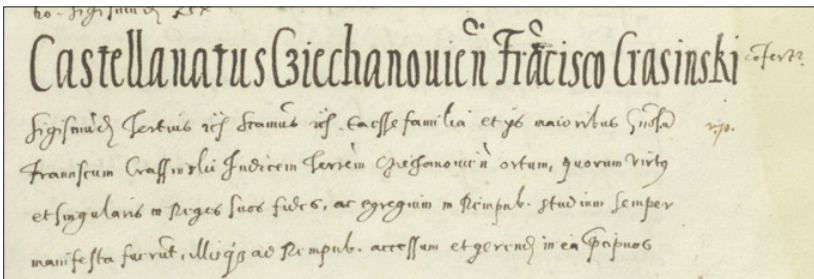 Sigismundus Rex
Castellanatus Cziechanouien̄ Frācisco Crasinski cōfertr
Sigismūd9 Tertius etc̄ Scimus etc̄. ea esse familia et ijs maioribus Gn̄sū
Franciscum Crassinski Iudicem Terrēn Ciechanouien̄ ortum, quorum virt9
et singularis in Reges suos fides, ac egregium in Rempub. studium semper
manifesta fuerūt, illisq3 ad Rempub. accessum et gerendi in ea p̄cipuos